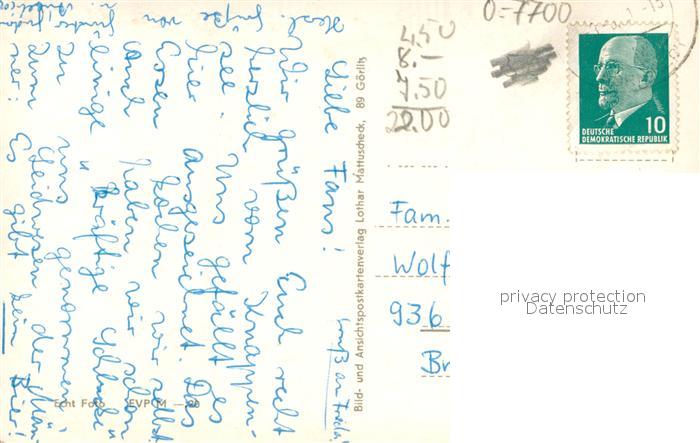 0-7700
4,50
8.-
7.50
20.00
DEUTSCHE
DEMOKRATISCHE REPUBLIK
10
Liebe Fams!
Wir grüßen Euch recht
herzlich vom Knappen-
see. Uns gefällt es
hier ausgezeichnet. Das
Essen kochen wir selbst
und haben wir schon
einige "kräftige Schlucke"
zu uns genommen
zum Leidwesen der Män-
ner: Es gibt kein Bier!
Herzl. Grüße von
Gruß an
Bild- und Ansichtspostkartenverlag Lothar Mattuscheck, 89 Görlitz
Echt Foto EVP M — 20
Fam.
Wolf
936
Br
privacy protection
Datenschutz